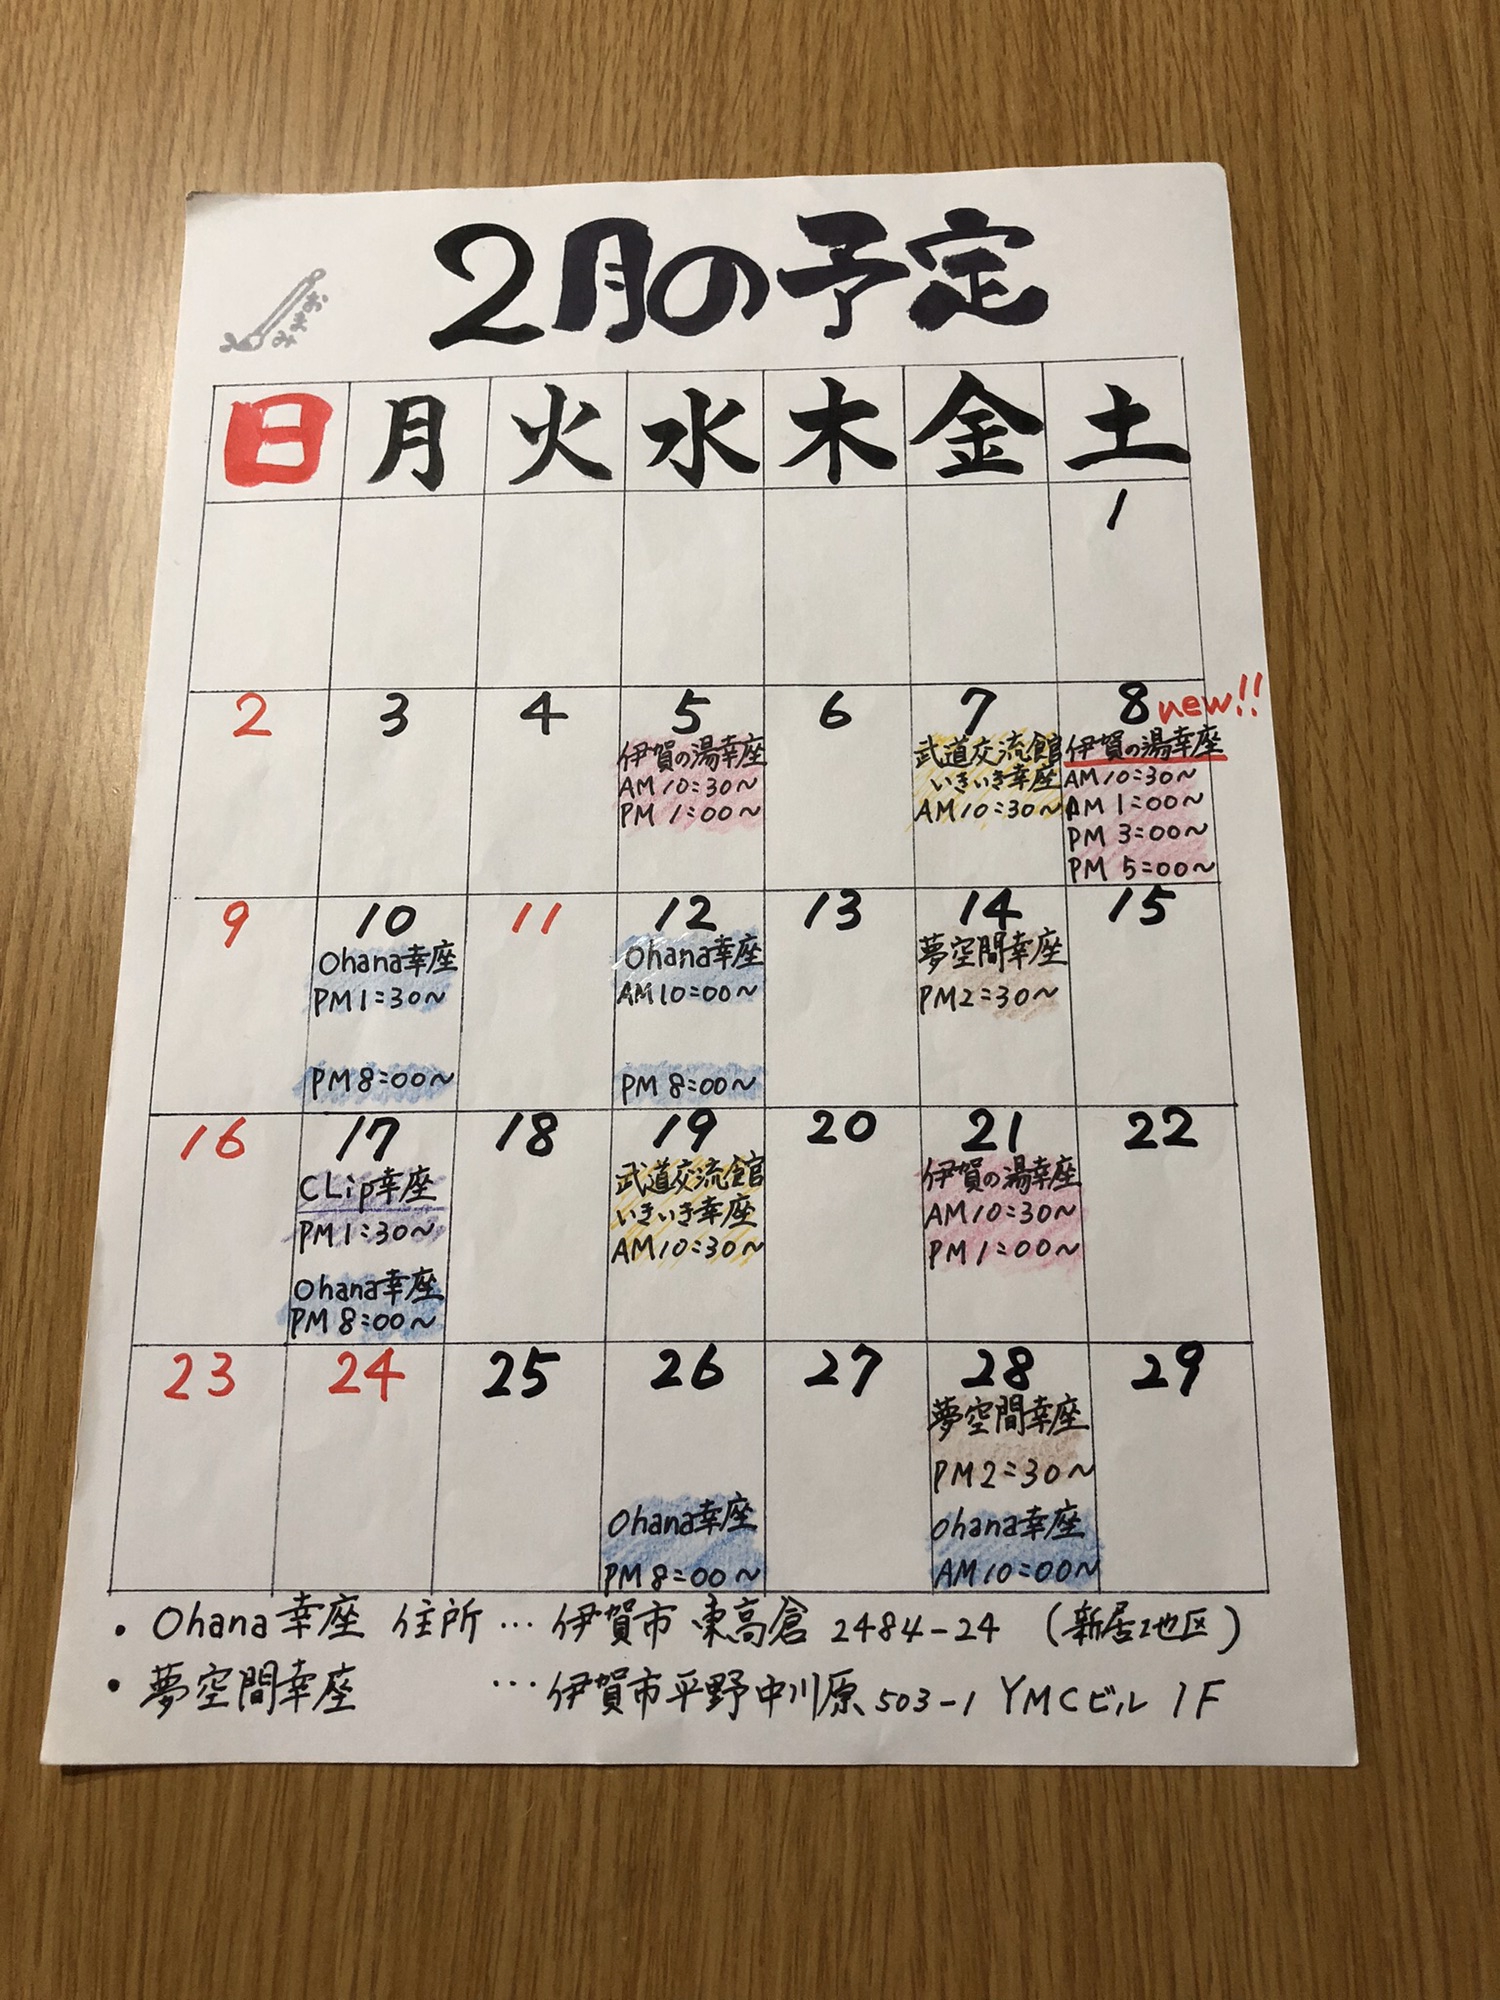 2月の予定
みずほ
日 月 火 水 木 金 土
1
2 3 4 5 6 7 8 new!!
伊賀の湯幸座
AM 10:30〜
PM 1:00〜
武道交流館
いきいき幸座
AM 10:30〜
伊賀の湯幸座
AM 10:30〜
AM 1:00〜
PM 3:00〜
PM 5:00〜
9 10 11 12 13 14 15
Ohana幸座
PM 1:30〜
PM 8:00〜
Ohana幸座
AM 10:00〜
PM 8:00〜
夢空間幸座
PM 2:30〜
16 17 18 19 20 21 22
CLip幸座
PM 1:30〜
Ohana幸座
PM 8:00〜
武道交流館
いきいき幸座
AM 10:30〜
伊賀の湯幸座
AM 10:30〜
PM 1:00〜
23 24 25 26 27 28 29
Ohana幸座
PM 8:00〜
夢空間幸座
PM 2:30〜
Ohana幸座
AM 10:00〜
・Ohana幸座 住所…伊賀市東高倉 2484-24 (新居地区)
・夢空間幸座 …伊賀市平野中川原 503-1 YMCビル 1F